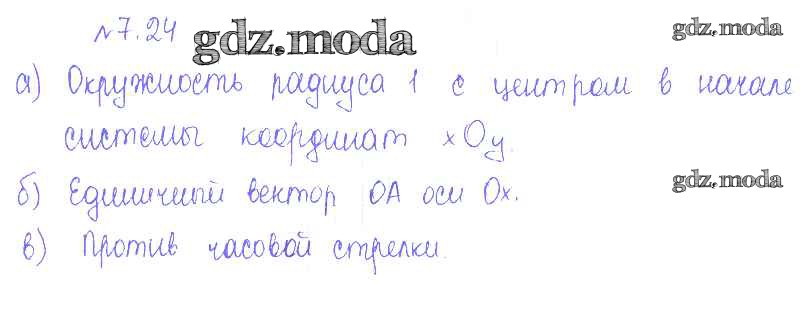 №7.24
gdz.moda
gdz.moda
а) Окружность радиуса 1 с центром в начале
системы координат xOy.
gdz.moda
б) Единичный вектор OA оси Ox.
в) Против часовой стрелки.